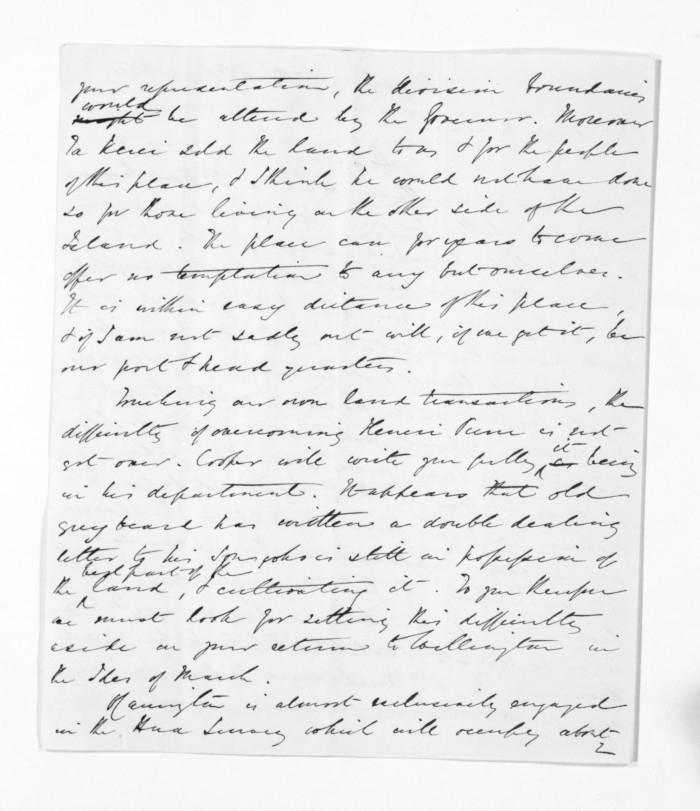 your representation, the division boundaries
would
might be altered by the Governor. Moreover
Te Kerei sold the land to us & for the people
of this place, & I think he would not have done
so for those living on the other side of the
Island. The place can for years to come
offer no temptation to any but ourselves.
It is within easy distance of this place,
& if I am not sadly out will, if we get it, be
our port & head quarters.
Touching our own land transactions, the
difficulty of overcoming Henere is not
it
got over. Cooper will write you fully, being
in his department. It appears that old
grey beard has written a double dealing
letter to his Son, who is still in possession of
best part of the
the land, & cultivating it. To you therefore
we must look for setting this difficulty
aside on your return to Wellington in
the Ides of March.
is almost exclusively engaged
in the Hua Survey which will occupy about